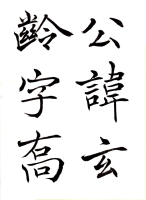 公諱玄
齡字喬